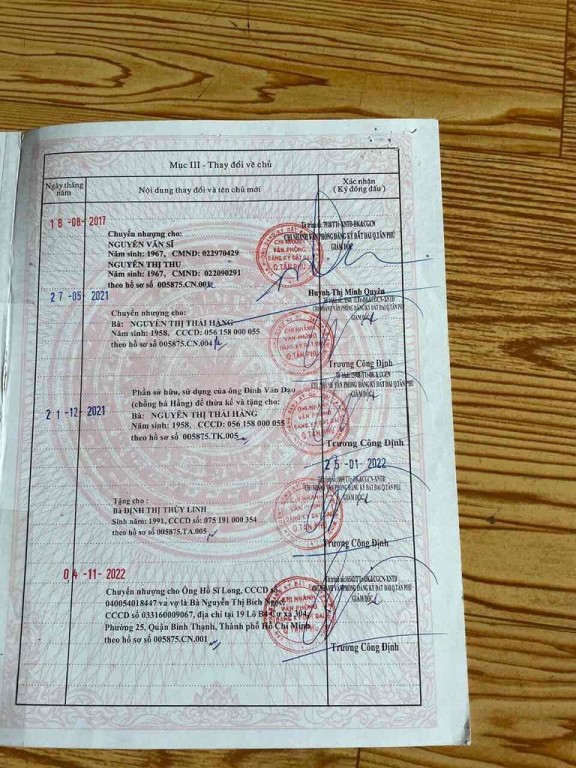 Mục III - Thay đổi về chủ
Ngày tháng năm
Nội dung thay đổi và tên chủ mới
Xác nhận
( Ký đóng dấu )
18-08-2017
Chuyển nhượng cho:
NGUYỄN VĂN SĨ
Năm sinh: 1967, CMND: 022970429
NGUYỄN THỊ THU
Năm sinh: 1967, CMND: 022090291
theo hồ sơ 005875.CN.001
CHI NHÁNH VĂN PHÒNG ĐĂNG KÝ ĐẤT ĐAI Q.TÂN PHÚ
GIÁM ĐỐC
Huỳnh Thị Minh Quyên
27-05-2021
Chuyển nhượng cho:
Bà: NGUYỄN THỊ THÁI HẰNG
Năm sinh: 1958, CCCD: 056 158 000 055
theo hồ sơ số 005875.CN.004
GIÁM ĐỐC
Trương Công Định
21-12-2021
Phần sở hữu, sử dụng của ông Đinh Văn Đạu
(chồng bà Hằng) để thừa kế và tặng cho:
Bà: NGUYỄN THỊ THÁI HẰNG
Năm sinh: 1958, CCCD: 056 158 000 055
theo hồ sơ số 005875.TK.005
GIÁM ĐỐC
Trương Công Định
25-01-2022
Tặng cho :
Bà ĐINH THỊ THÙY LINH
Sinh năm: 1991, CCCD số: 075 191 000 354
theo hồ sơ số 005875.TA.005
GIÁM ĐỐC
Trương Công Định
04-11-2022
Chuyển nhượng cho Ông Hồ Sĩ Long, CCCD số
040054018447 và vợ là Bà Nguyễn Thị Bích Ngọc
CCCD số 033160009067, địa chỉ tại 19 Lô B4 Cư xá 304
Phường 25, Quận Bình Thạnh, Thành phố Hồ Chí Minh
theo hồ sơ số 005875.CN.001
GIÁM ĐỐC
Trương Công Định